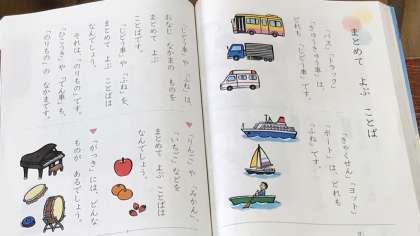 まとめて よぶ ことば
「バス」「トラック」
「きゅうきゅう車」は、
どれも「じどう車」です。
「きゃくせん」「ヨット」
「ボート」は、どれも
「ふね」です。
「じどう車」や「ふね」は、
おなじ なかまの ものを
まとめて よぶ
ことばです。
「じどう車」や「ふね」を、
まとめて よぶ ことばは
なんでしょう。
それは、「のりもの」です。
「ひこうき」や「でん車」も、
「のりもの」の なかまです。
「りんご」や「みかん」、
「いちご」などを
まとめて よぶ ことばは
なんでしょう。
「がっき」には、どんな
ものが あるでしょう。